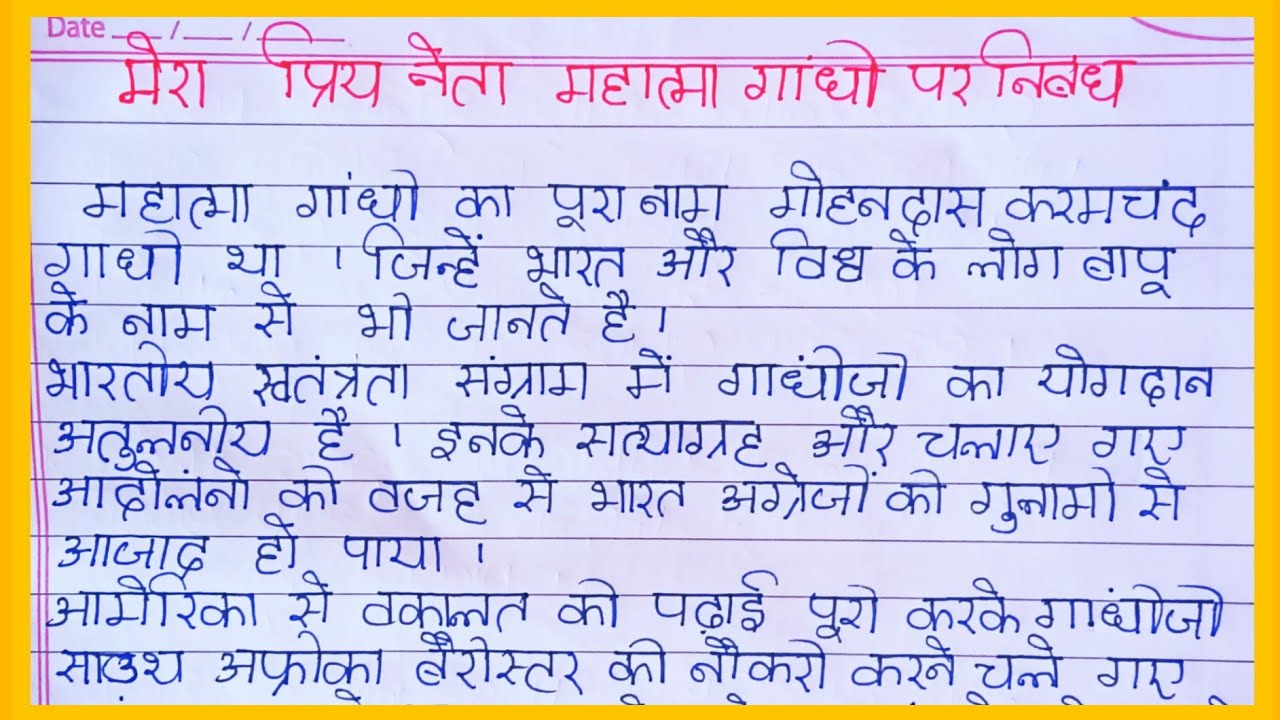 Date ___/___/_____
मेरा प्रिय नेता महात्मा गांधी पर निबंध
महात्मा गांधी का पूरा नाम मोहनदास करमचंद
गाधी था । जिन्हें भारत और विश्व के लोग बापू
के नाम से भी जानते है।
भारतीय स्वतंत्रता संग्राम में गाधींजी का योगदान
अतुलनीय है । इनके सत्याग्रह और चलाए गए
आदोलंनो की वजह से भारत अग्रेजों की गुलामी से
आजाद हो पाया ।
आमेरिका से वकालत की पढ़ाई पूरी करके गाधींजी
साउथ अफ्रीका बैरीस्टर की नौकरी करने चले गए